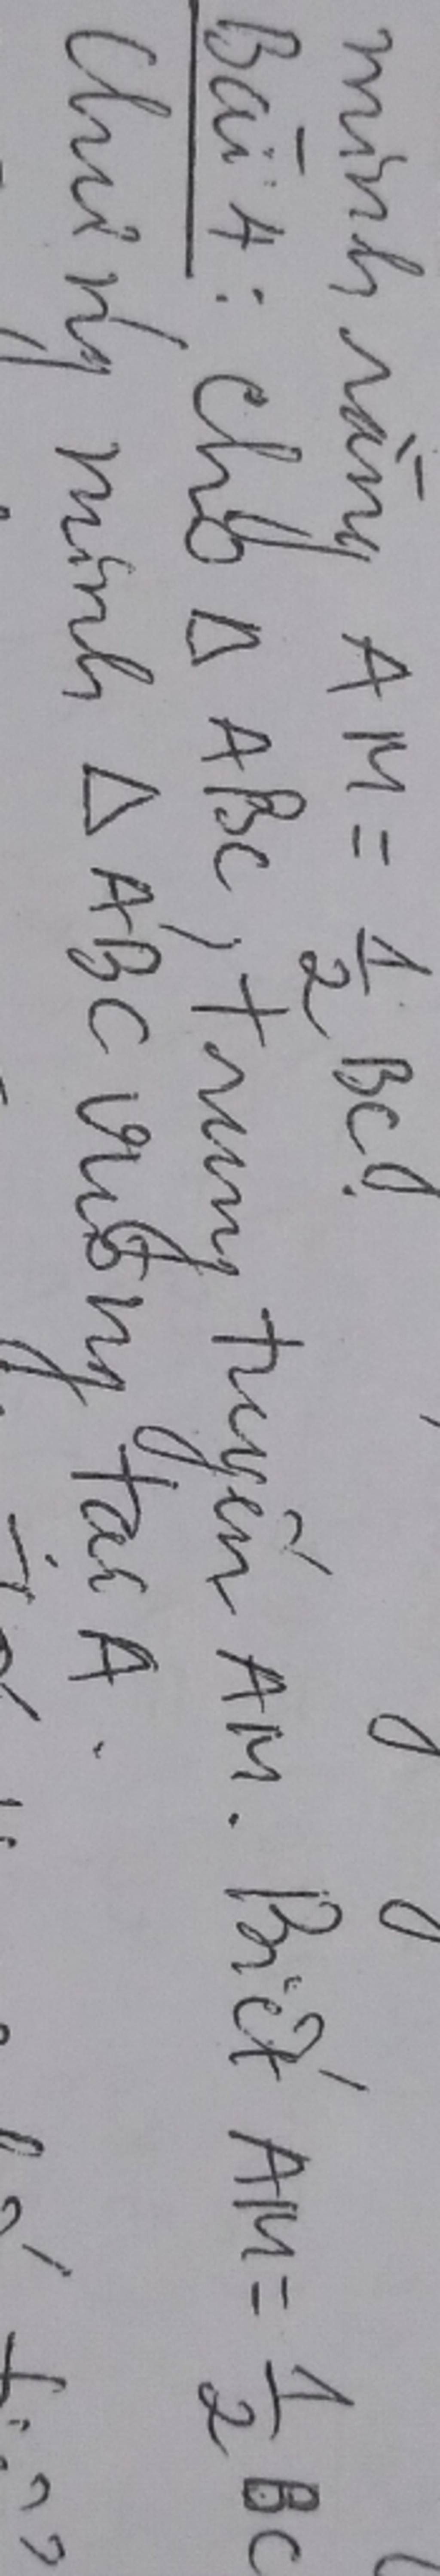 minh rằng AM = 1/2 BC.
Bài 4: Cho Δ ABC, trung tuyến AM. Biết AM = 1/2 BC
Chứng minh Δ ABC vuông tại A.